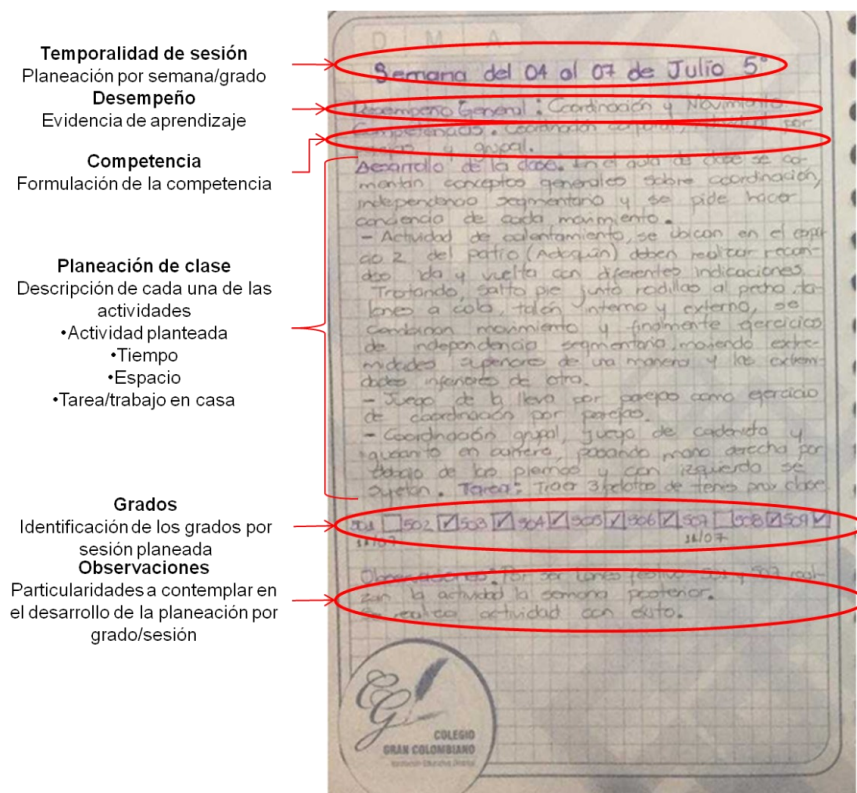 Temporalidad de sesión
Planeación por semana/grado
Desempeño
Evidencia de aprendizaje
Competencia
Formulación de la competencia
Planeación de clase
Descripción de cada una de las
actividades
•Actividad planteada
•Tiempo
•Espacio
•Tarea/trabajo en casa
Grados
Identificación de los grados por
sesión planeada
Observaciones
Particularidades a contemplar en
el desarrollo de la planeación por
grado/sesión
D M A
Semana del 04 al 07 de Julio 5°
Desempeño General: Coordinación y Movimiento
Competencias. Coordinación corporal, por
parejas y grupal.
Desarrollo de la clase: En el aula de clase se co-
mentan conceptos generales sobre coordinación,
independencia segmentaria y se pide hacer
conciencia de cada movimiento.
- Actividad de calentamiento, se ubican en el espa-
cio 2 del patio (Adoquín) deben realizar
ida y vuelta con diferentes indicaciones
Trotando, salto pie junto rodillas al pecho, ta-
lones a cola, talón interno y externo, se
combinan movimiento y finalmente ejercicios
de independencia segmentaria, moviendo extre-
midades superiores de una manera y las extremi-
dades inferiores de otra.
- Juego de la lleva por parejas como ejercicio
de coordinación por parejas.
- Coordinación grupal, juego de cadeneta y
gusanito en pasando mano derecha por
debajo de las piernas y con izquierda se
sujetan. Tarea: Traer 3 pelotas de tenis prox clase
501 502 503 504 505 506 507 508 509
11/07 11/07
Observaciones: Por ser lunes festivo 501 y 507 reali-
zan la actividad la semana posterior.
Se realizó actividad con éxito.
CG
COLEGIO
GRAN COLOMBIANO